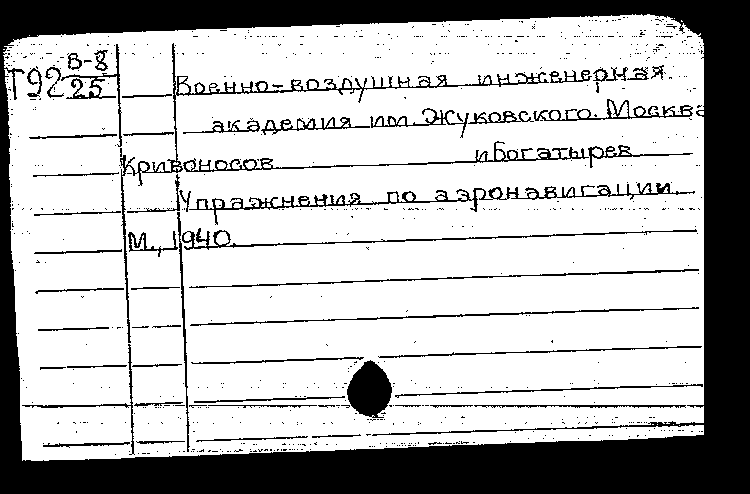 Т92 В-8/25
Военно-воздушная инженерная
академия им. Жуковского. Москва
Кривоносов и Богатырев
Упражнения по аэронавигации.
М., 1940.